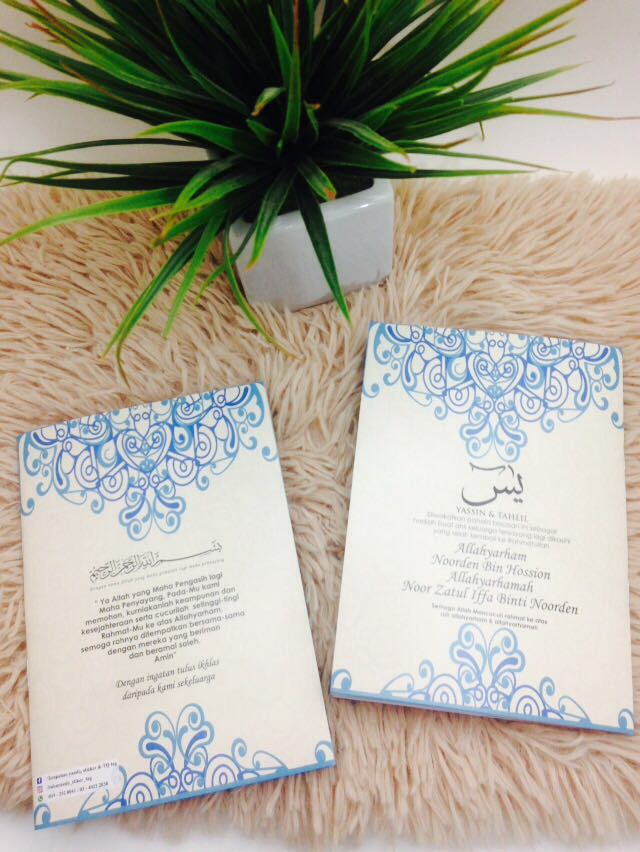 بسم الله الرحمن الرحيم
Dengan nama Allah yang maha pemurah lagi maha penyayang
" Ya Allah yang Maha Pengasih lagi
Maha Penyayang, Pada-Mu kami
memohon, kurniakanlah keampunan dan
kesejahteraan serta cucurilah setinggi-tinggi
Rahmat-Mu ke atas Allahyarham,
semoga rohnya ditempatkan bersama-sama
dengan mereka yang beriman
dan beramal soleh.
Amin"
Dengan ingatan tulus ikhlas
daripada kami sekeluarga
يس
YASSIN & TAHLIL
Diwakafkan pahala bacaan ini sebagai
hadiah buat ahli keluarga tersayang lagi dikasihi
yang telah kembali ke Rahmatullah
Allahyarham
Noorden Bin Hossion
Allahyarhamah
Noor Zatul Iffa Binti Noorden
Semoga Allah Mencucuri rahmat ke atas
roh allahyarham & allahyarhamah